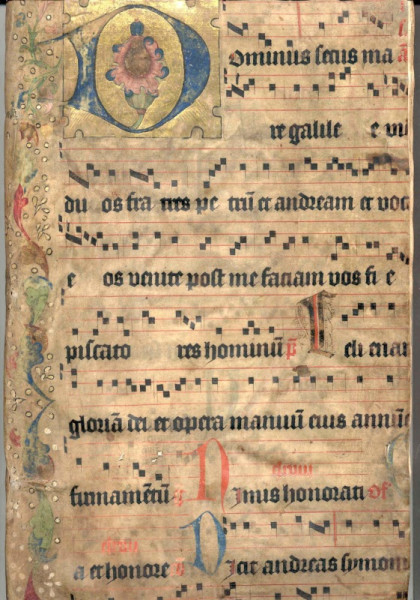 Dominus secus ma
re galile e vi
du os fra tres pe trū et andream et voc
e os venite post me faciam vos fi e
piscato res hominū p̄ C eli enar
gloriā dei et opera manuū eius annūc
firmamētū N imus honorati Of
a et honore D icit andreas symon